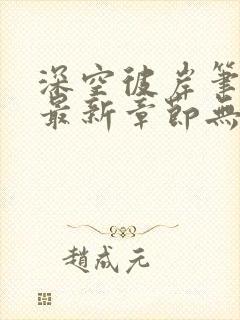 深空彼岸筆
最新章節無
趙成元